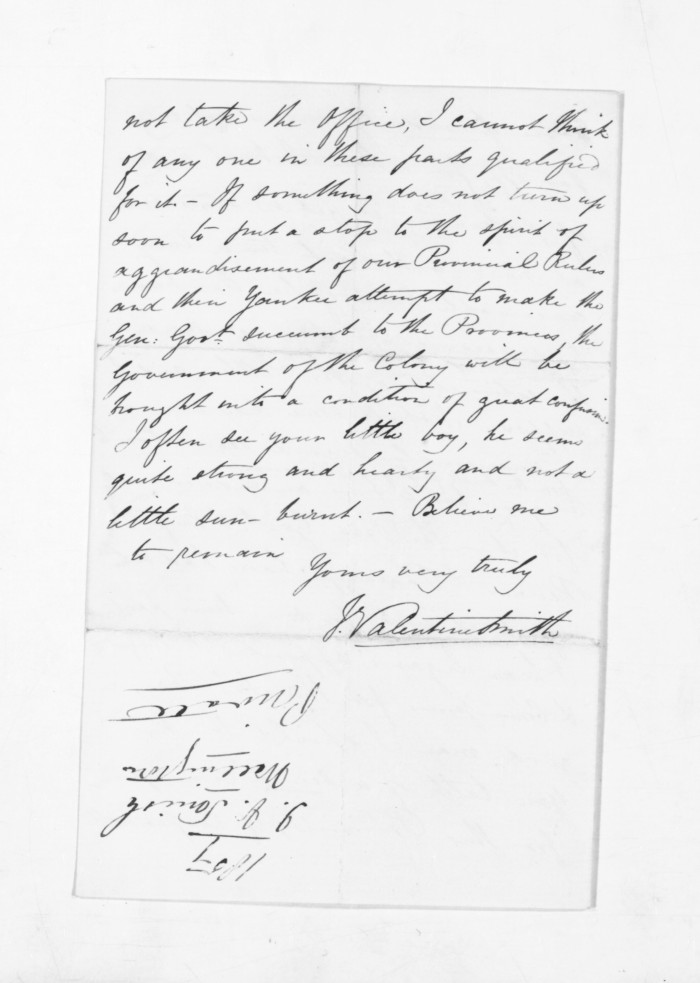 not take the Office, I cannot think
of any one in these parts qualified
for it. - If something does not turn up
soon to put a stop to the spirit of
aggrandisement of our Provincial Rulers
and their Yankee attempt to make the
Gen: Govt. succumb to the Provinces, the
Government of the Colony will be
brought into a condition of great confusion.
I often see your little boy, he seems
quite strong and hearty and not a
little sun-burnt. - Believe me
to remain
Yours very truly
J. Valentine Smith
1857
J. V. Smith
Wellington
Private